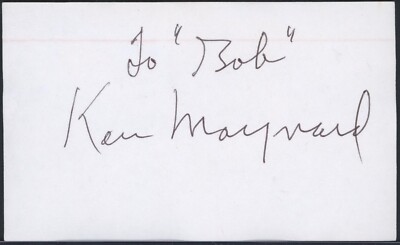 To "Bob"
Ken Maynard